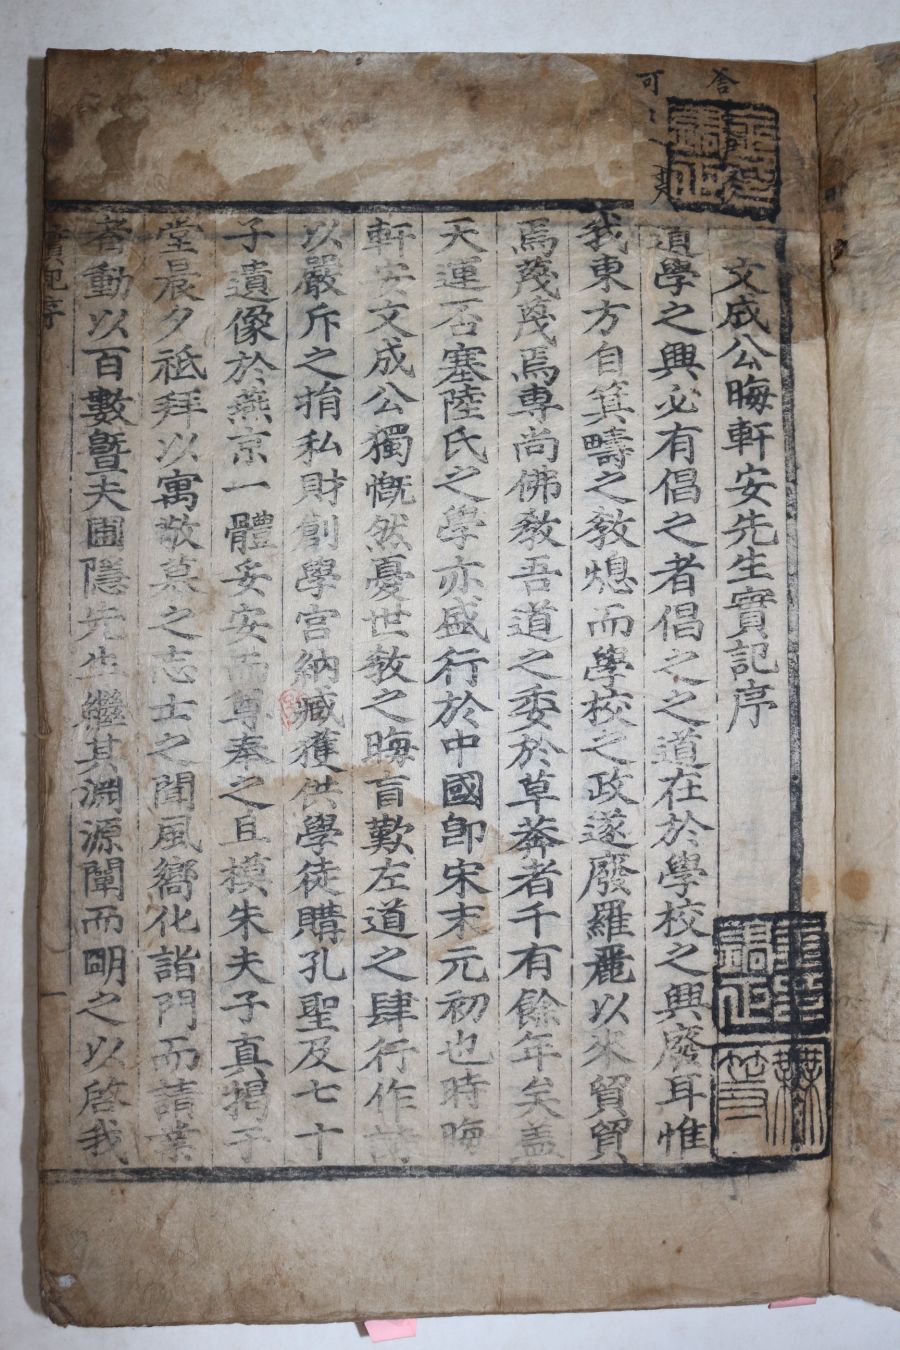 文成公晦軒安先生實記序
道學之興必有倡之者倡之之道在於學校之興廢耳惟
我東方自箕疇之教熄而學校之政遂廢羅麗以來貿貿
焉蔑蔑焉專尚佛教吾道之委於草莽者千有餘年矣盖
天運否塞陸氏之學亦盛行於中國卽宋末元初也時晦
軒安文成公獨慨然憂世教之晦盲歎左道之肆行作詩
以嚴斥之捐私財創學宮納臧獲供學徒購孔聖及七十
子遺像於燕京一體妥安而尊奉之且模朱夫子真揭于
堂晨夕祗拜以寓敬慕之志士之聞風嚮化詣門而請業
者動以百數曁夫圃隱先生繼其淵源闡而明之以啓我
實記序
一